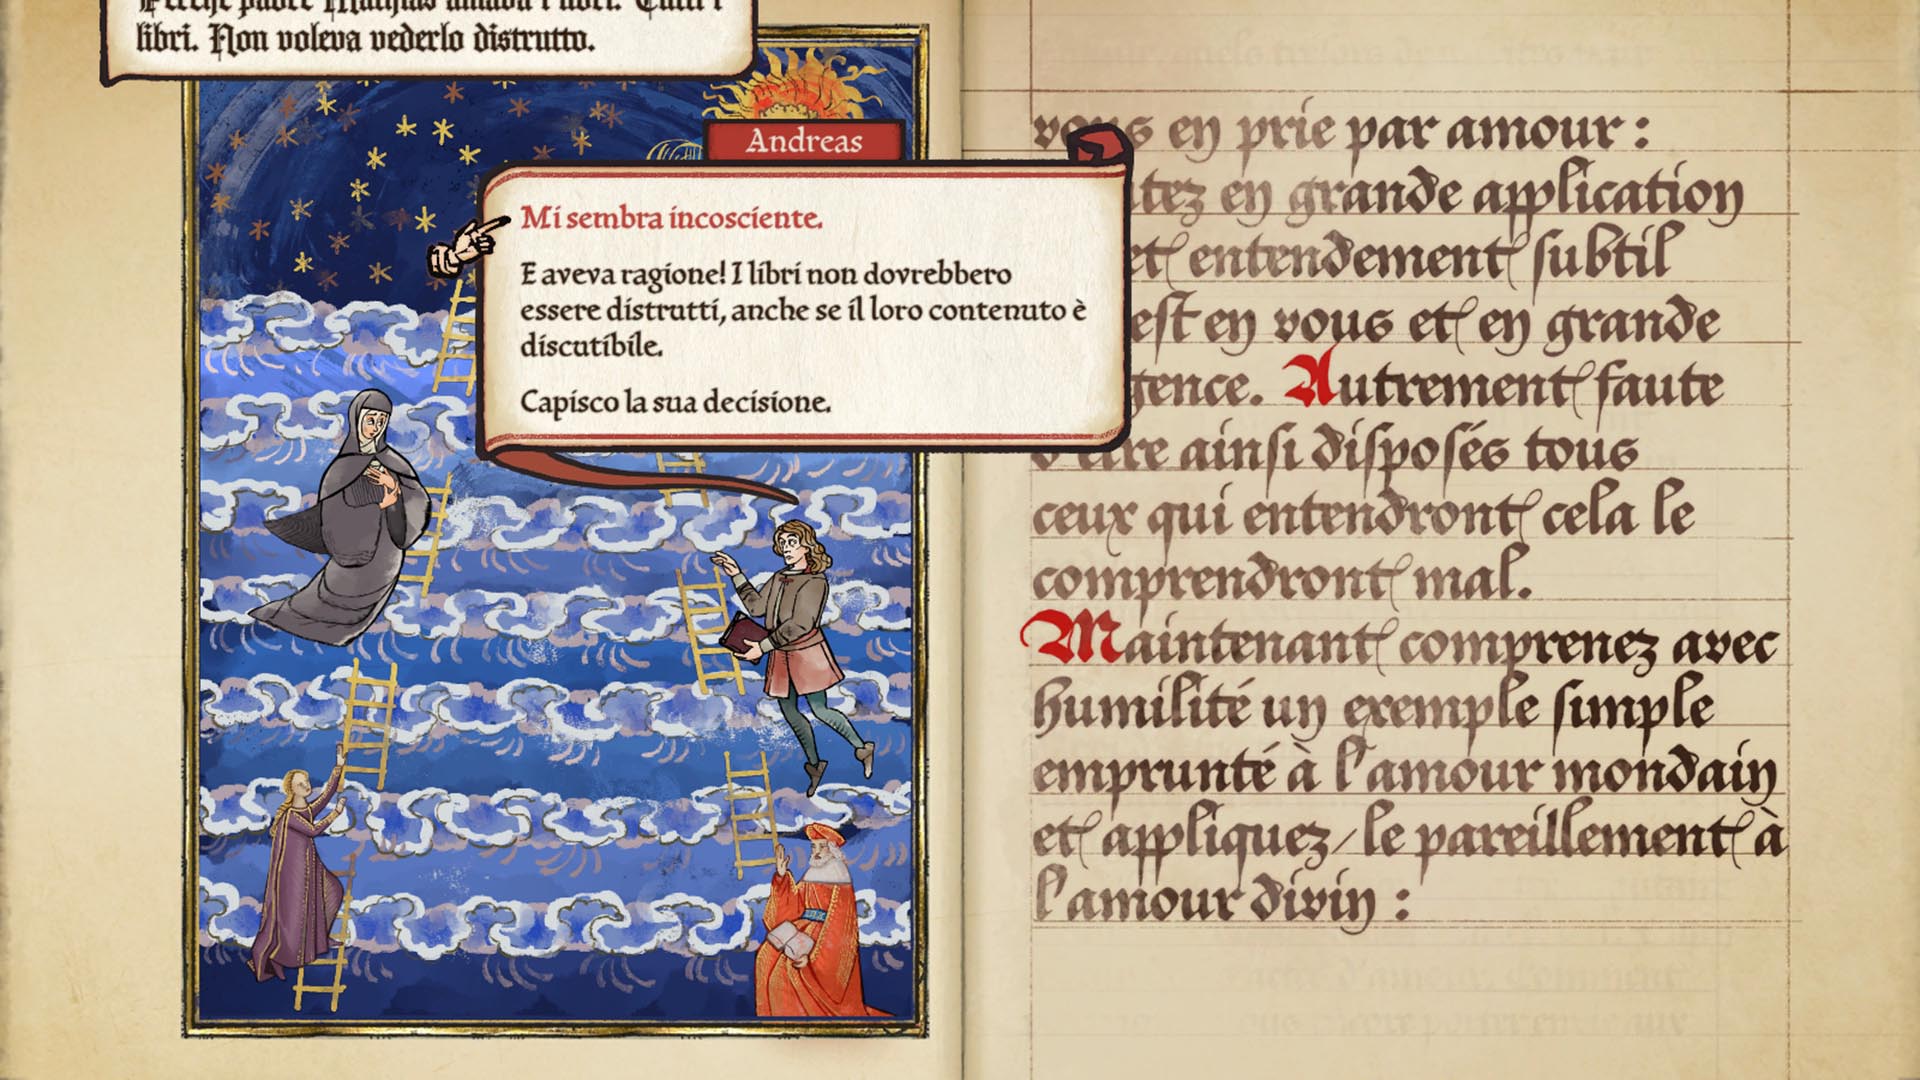 Perché padre Mathias amava i libri. Tutti i
libri. Non voleva vederlo distrutto.
Andreas
Mi sembra incosciente.
E aveva ragione! I libri non dovrebbero
essere distrutti, anche se il loro contenuto è
discutibile.
Capisco la sua decisione.
vous en prie par amour :
tez en grande application
et entendement subtil
est en vous et en grande
gence. Autrement faute
d'être ainsi disposés tous
ceux qui entendront cela le
comprendront mal.
Maintenant comprenez avec
humilité un exemple simple
emprunté à l'amour mondain
et appliquez-le pareillement à
l'amour divin :